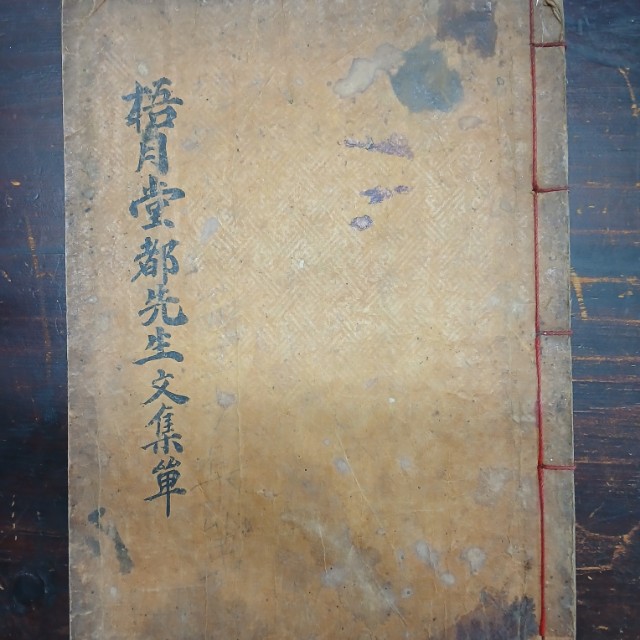 梧月堂都先生文集單